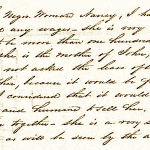 Negro Woman Nancy, I ha
any wages - she is very
be more than one hundred
she is the mother of John,
I asks the leave of
ther, because it would be of
I considered that it would
and humane to sell them,
together - she is a very s
as will be seen by the a